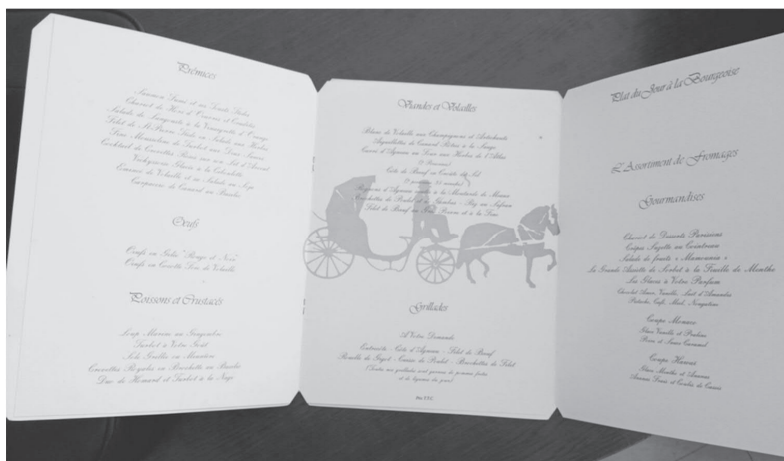 Prémices
Saumon Fumé et ses Toasts
Salade de Langoustes à la Vinaigrette d'Orange
Filet de St-Pierre Tiède en Salade aux Herbes
Fine Mousseline de Turbot aux Deux Sauces
Cocktail de Crevettes Roses sur son Lit d'Avocat
Vichyssoise Glacée à la Ciboulette
Emincé de Volaille et sa Salade au Soja
Carpaccio de Canard au Basilic
Œufs
Œufs en Gelée "Rouge et Noir"
Œufs en Cocotte Foie de Volaille
Poissons et Crustacés
Loup Mariné au Gingembre
Turbot à Votre Goût
Sole Grillée ou Meunière
Crevettes Royales en Brochette au Basilic
Duo de Homard et Turbot à la Nage
Viandes et Volailles
Blanc de Volaille aux Champignons et Artichauts
Aiguillettes de Canard Poêlées à la Sauge
Carré d'Agneau au Four aux Herbes de l'Atlas
(2 Personnes)
Côte de Bœuf en Croûte de Sel
Rognons d'Agneau sautés à la Moutarde de Meaux
Filet de Bœuf au
Grillades
A Votre Demande
Entrecôte - Côte d'Agneau - Filet de Bœuf
Rouelle de Gigot - Cuisse de Poulet - Brochettes de Filet
(Toutes nos grillades sont garnies de pommes frites
et de légumes du jour)
Plat du Jour à la Bourgeoise
L'Assortiment de Fromages
Gourmandises
Chariot de Desserts Parisiens
Crêpes Suzette au Cointreau
Salade de fruits « Mamounia »
La Grande Assiette de Sorbet à la Feuille de Menthe
Les Glaces à Votre Parfum
Chocolat Amer, Vanille, Lait d'Amandes
Pistache, Café, Miel, Nougatine
Coupe Monaco
Glace Vanille et Praliné
Poire et Sauce Caramel
Coupe Hawaï
Glace Menthe et Ananas
Ananas Frais et Coulis de Cassis